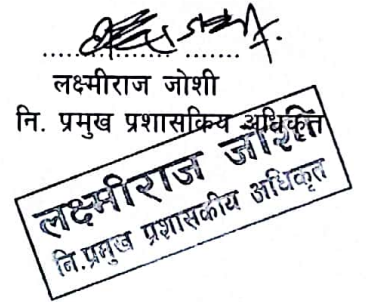 लक्ष्मीराज जोशी
नि. प्रमुख प्रशासकिय अधिकृत
लक्ष्मीराज जोशी
नि.प्रमुख प्रशासकीय अधिकृत